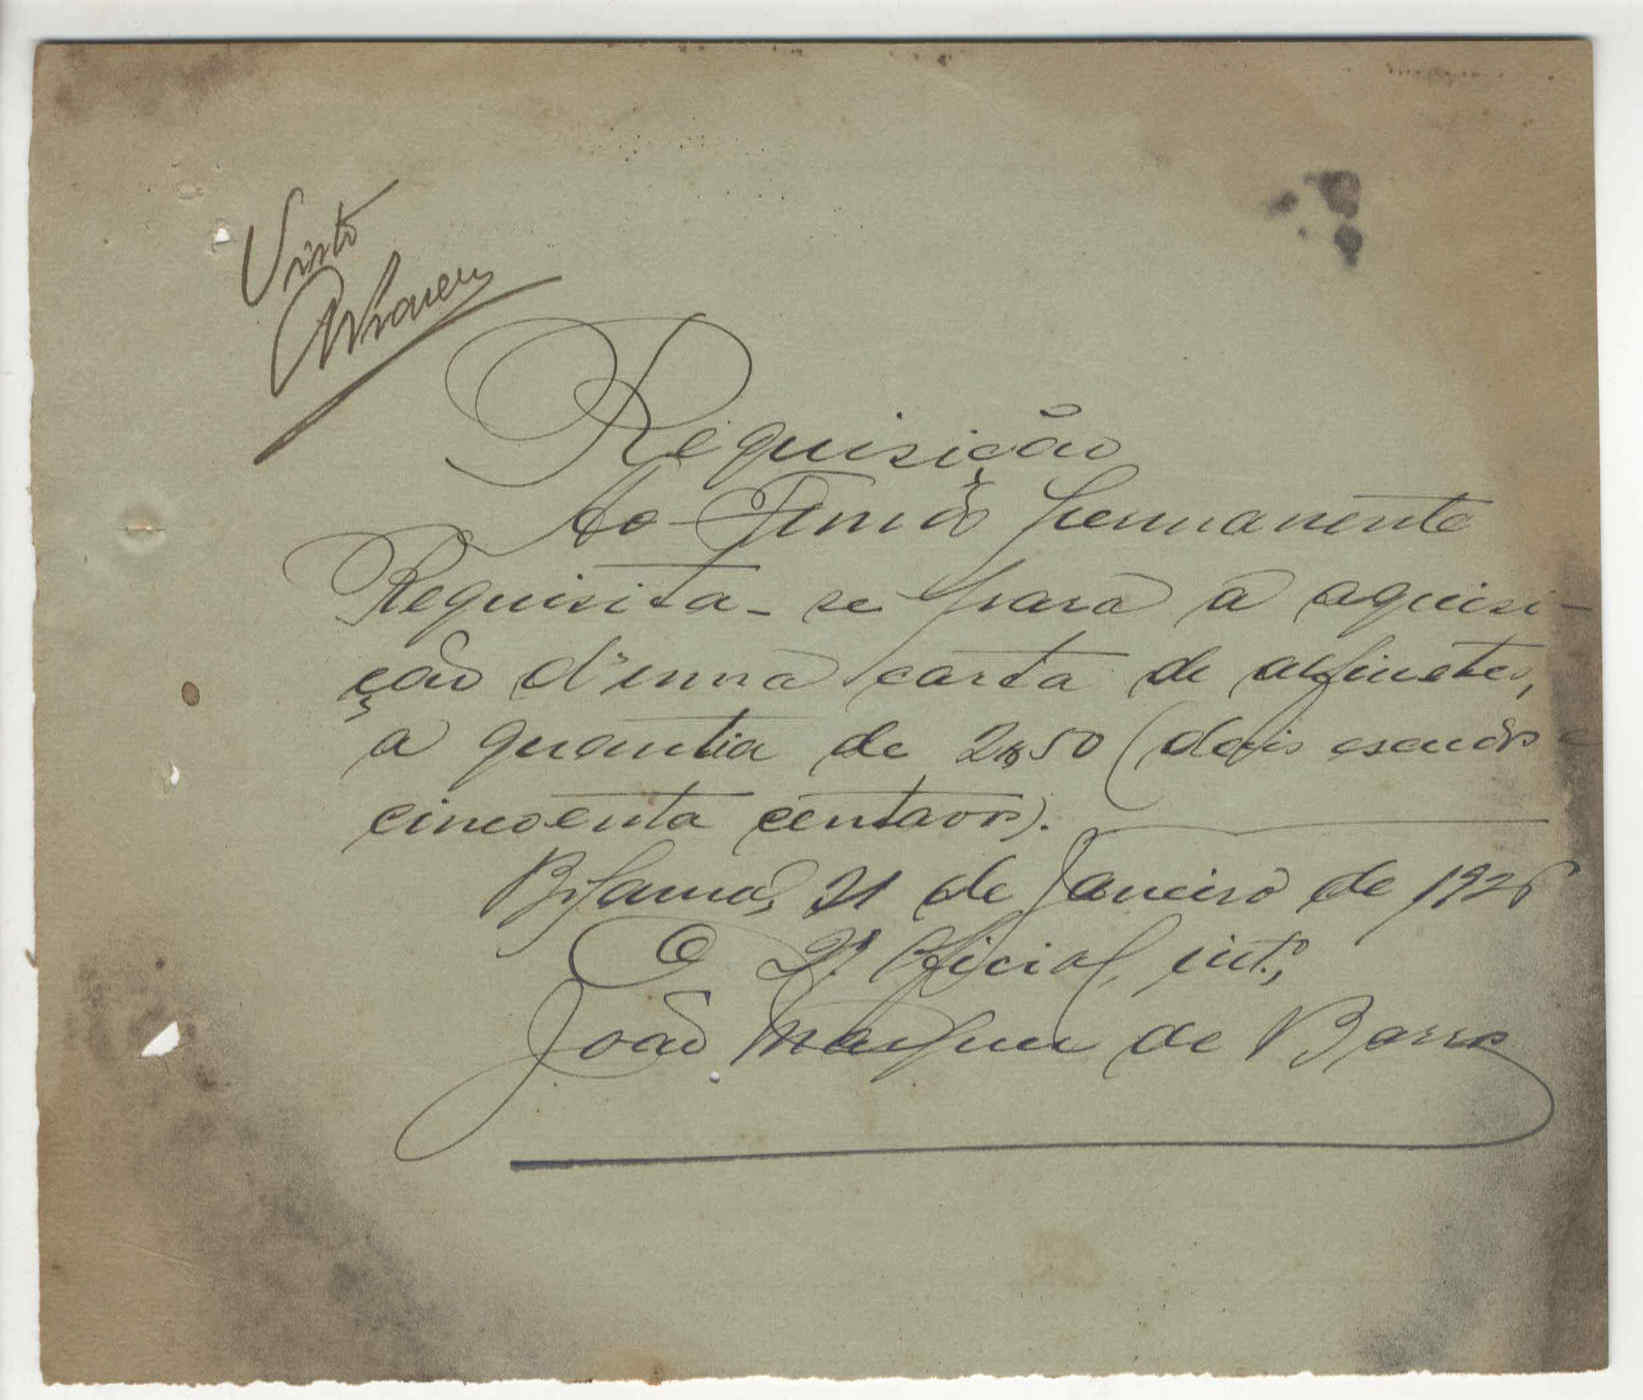 Visto
Requisição
Ao Fundo permanente
Requisita-se para a aquisi-
ção d'uma carta de alfinetes,
a quantia de 2$50 (dois escudos e
cincoenta centavos).
Bolama, 21 de Janeiro de 1926
O 2º. Oficial, intº.,
João Marques de Barros